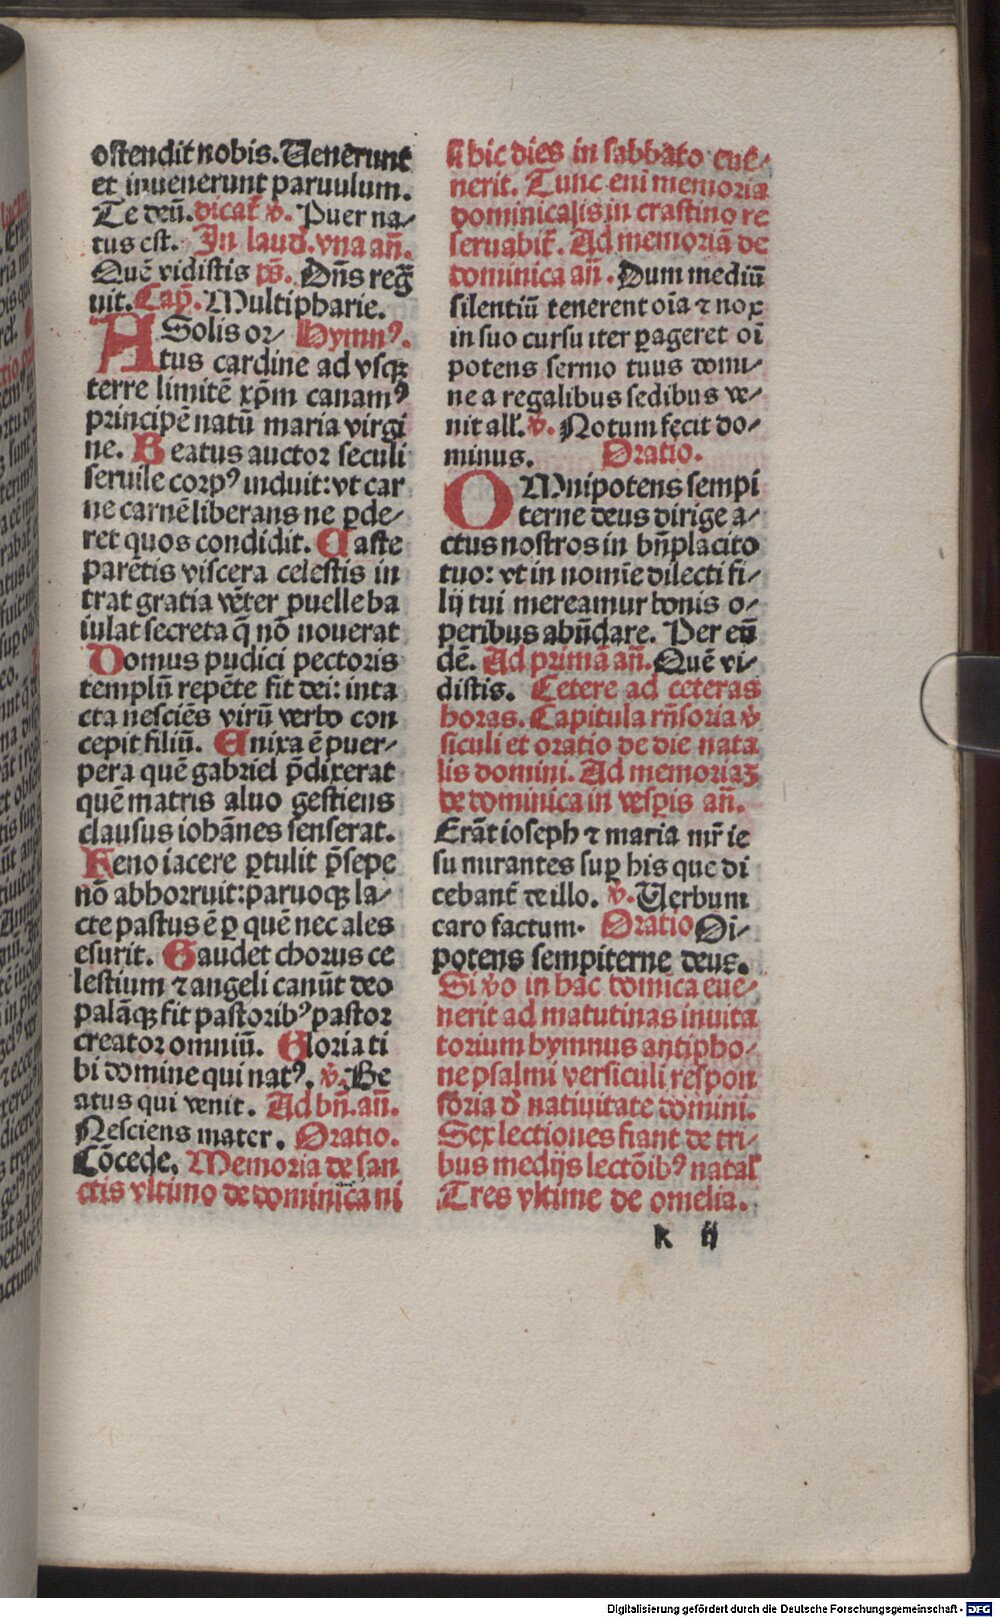 ostendit nobis. Uenerunt
et inuenerunt paruulum.
Te deū. dicat̄ v̄. Puer na⸗
tus est. In laud. vna an̄.
Quē vidistis ps̄. Dn̄s reḡ
uit. Cap̄. Multipharie.
A Solis or⸗ Hymnꝰ.
tus cardine ad vsqꝫ
terre limitē xp̄m canamꝰ
principē natū maria virgi
ne. Beatus auctor seculi
seruile corpꝰ induit: vt car
ne carnē liberans ne ꝑde⸗
ret quos condidit. Caste
parētis viscera celestis in
trat gratia vēter puelle ba
iulat secreta q̄ nō nouerat
Domus pudici pectoris
templū repēte fit dei: inta
cta nesciēs virū verbo con
cepit filiū. Enixa ē puer⸗
pera quē gabriel p̄dixerat
quē matris aluo gestiens
clausus iohānes senserat.
Feno iacere ꝑtulit p̄sepe
nō abhorruit: paruoqꝫ la⸗
cte pastus ē ꝑ quē nec ales
esurit. Gaudet chorus ce
lestium ⁊ angeli canūt deo
palāqꝫ fit pastoribꝰ pastor
creator omniū. Gloria ti
bi domine qui natꝰ. v̄. Be
atus qui venit. Ad bn̄. an̄.
Nesciens mater. Oratio.
Cōcede. Memoria de san
ctis vltimo de dominica ni
si hic dies in sabbato eue⸗
nerit. Tunc eni memoria
dominicalis in crastino re
seruabit̄. Ad memoriā de
dominica an̄. Dum mediū
silentiū tenerent oīa ⁊ nox
in suo cursu iter ꝑageret oī
potens sermo tuus domi⸗
ne a regalibus sedibus ve⸗
nit all̄. v̄. Notum fecit do⸗
minus. Oratio.
OMnipotens sempi
terne deus dirige a⸗
ctus nostros in bn̄placito
tuo: vt in nomīe dilecti fi⸗
lij tui mereamur bonis o⸗
peribus abūdare. Per eū
dē. Ad primā an̄. Quē vi⸗
distis. Cetere ad ceteras
horas. Capitula rn̄soria v̄
siculi et oratio de die nata
lis domini. Ad memoriaꝫ
de dominica in vesꝑis an̄.
Erāt ioseph ⁊ maria mr̄ ie
su mirantes suꝑ his que di
cebant̄ de illo. v̄. Uerbum
caro factum. Oratio Oi⸗
potens sempiterne deus.
Si v̄o in hac domica eue⸗
nerit ad matutinas inuita
torium hymnus antipho⸗
ne psalmi versiculi respon
soria d̄ natiuitate domini.
Sex lectiones fiant de tri⸗
bus medijs lectōibꝰ natal̄
Tres vltime de omelia.
k ij
Digitalisierung gefördert durch die Deutsche Forschungsgemeinschaft - DFG